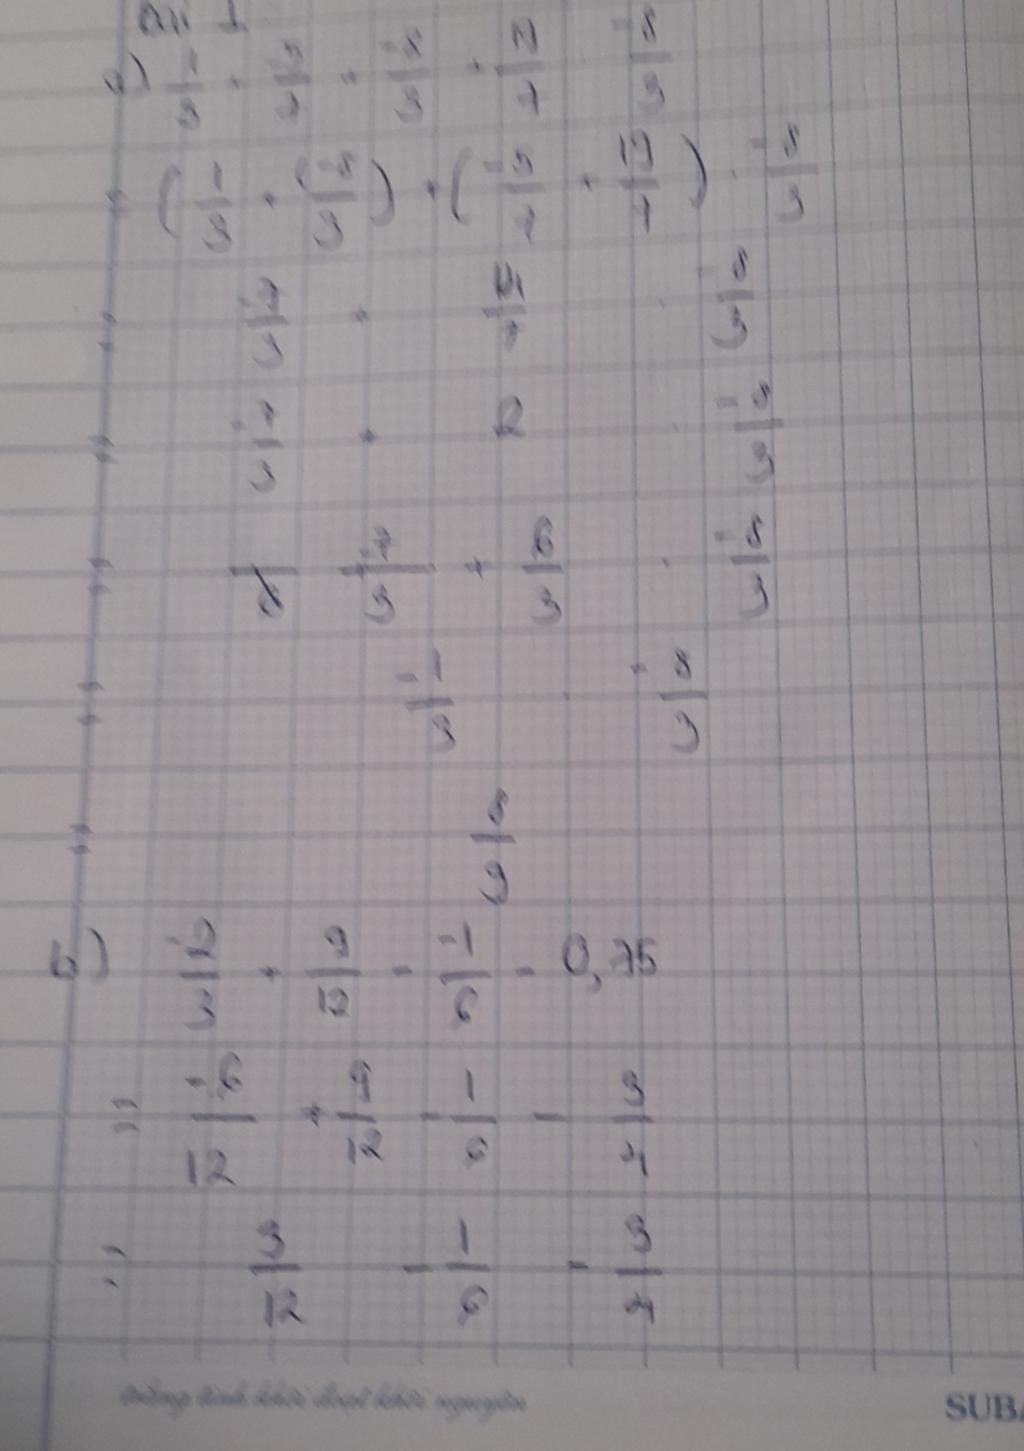 a) 1/3 + -5/7 + -8/3 + 19/7 . -8/3
= (1/3 + (-8/3) + (-5/7 + 19/7) . -8/3
= -7/3 + 14/7 . -8/3
= -7/3 + 2 . -8/3
= -7/3 + 6/3 . -8/3
= -1/3 . -8/3
= 8/9
b) -2/3 + 9/12 - -1/6 - 0,75
= -6/12 + 9/12 - 1/6 - 3/4
= 3/12 - 1/6 - 3/4
SUBA